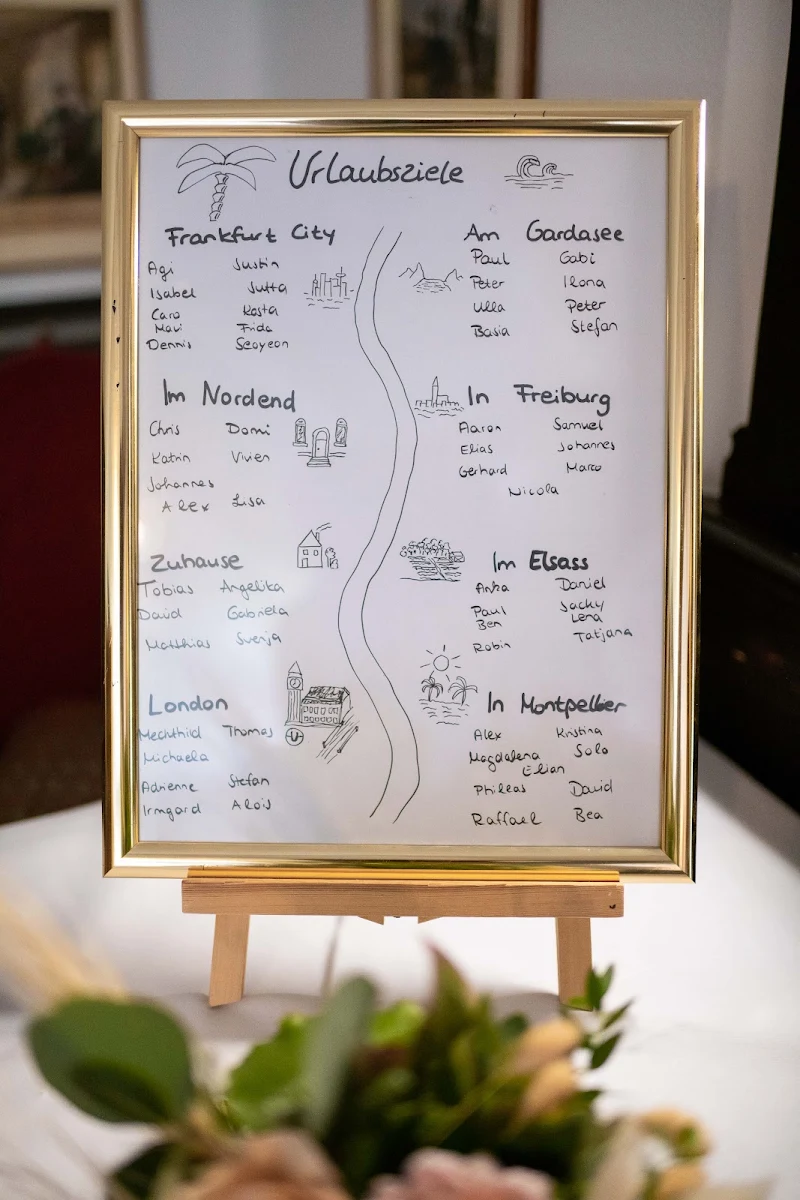 Urlaubsziele
Frankfurt City
Agi Justin
Isabel Jutta
Caro Kosta
Mavi Frida
Dennis Seoyeon
Im Nordend
Chris Domi
Katrin Vivien
Johannes
Alex Lisa
Zuhause
Tobias Angelika
David Gabriela
Matthias Svenja
London
Mechthild Thomas
Michaela
Adrienne Stefan
Irmgard Alois
U
Am Gardasee
Paul Gabi
Peter Ilona
Ulla Peter
Basia Stefan
In Freiburg
Aaron Samuel
Elias Johannes
Gerhard Marco
Nicola
Im Elsass
Anka Daniel
Paul Jacky
Ben Lena
Robin Tatjana
In Montpellier
Alex Kristina
Magdalena Solo
Elian
Phileas David
Raffael Bea